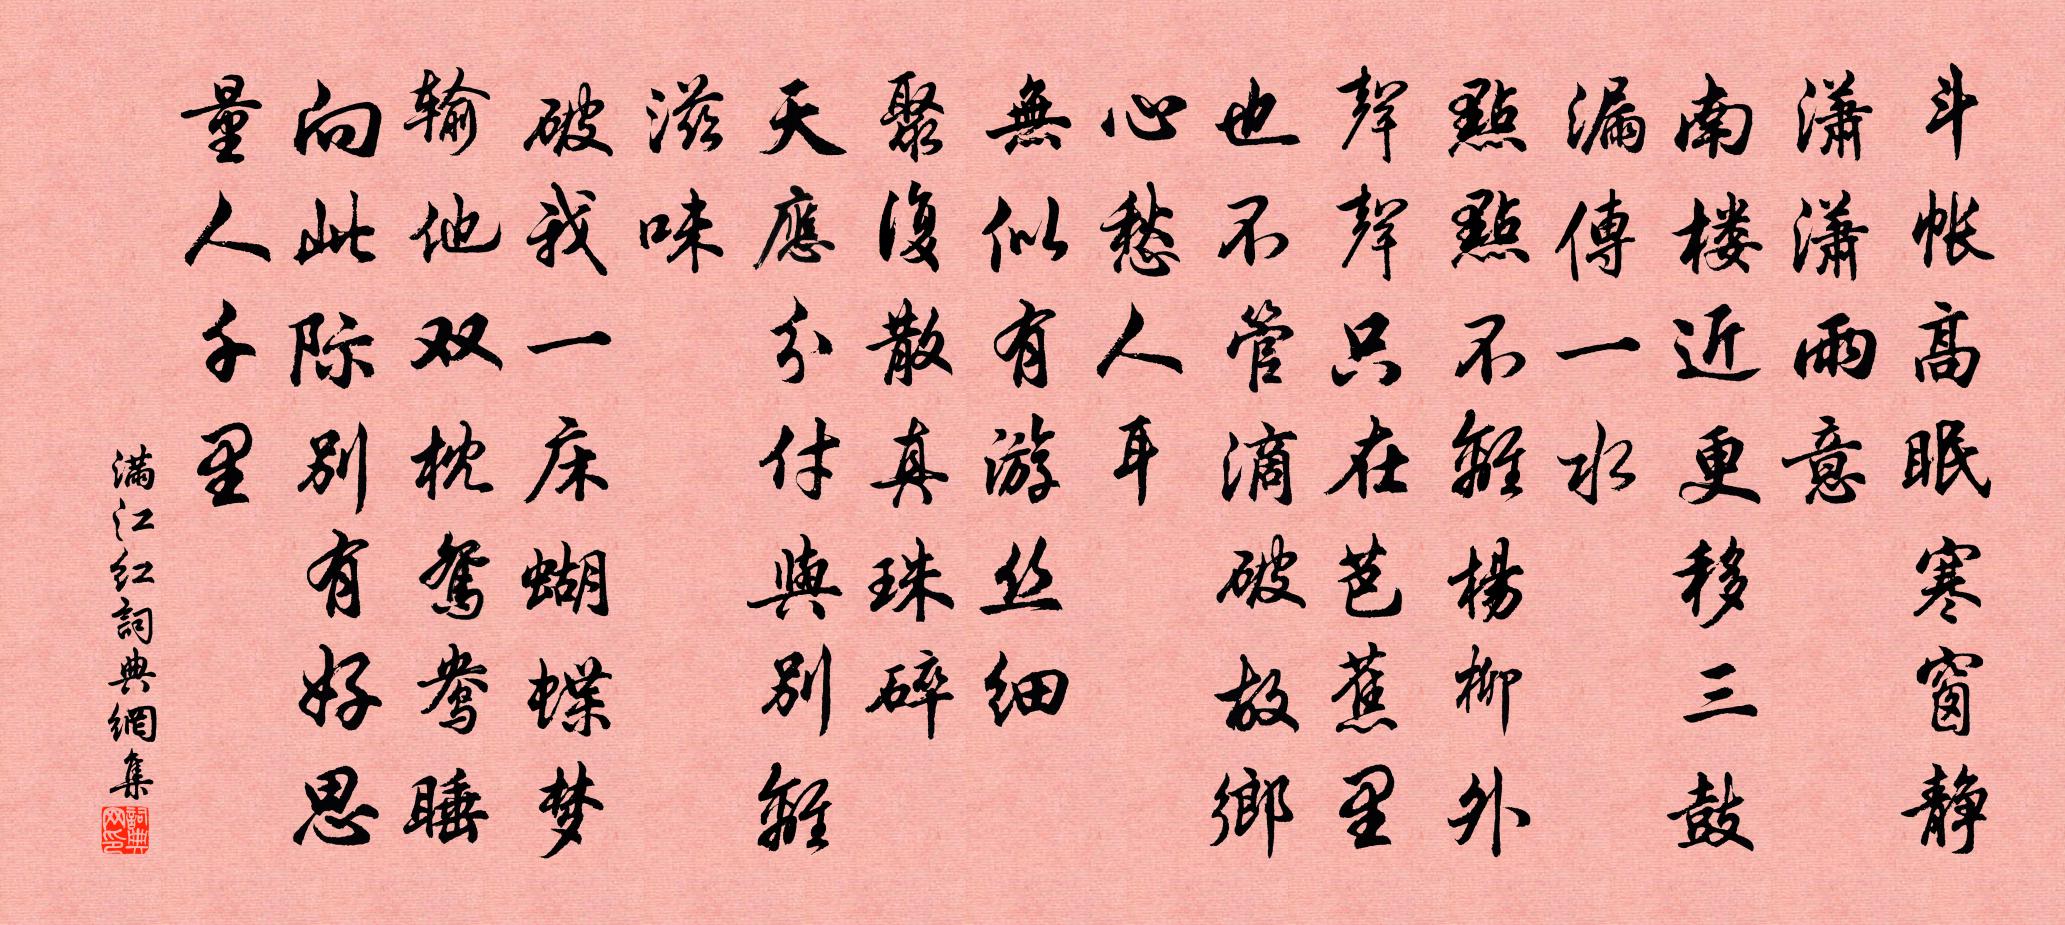 斗帐高眠寒窗静
潇潇雨意
南楼近更移三鼓
漏傳一水
點點不離楊柳外
聲聲只在芭蕉里
也不管滴破故鄉
心愁人耳
無似有游丝细
聚復散真珠碎
天應分付與别離
滋味
破我一床蝴蝶梦
输他双枕鸳鸯睡
向此际别有好思
量人千里
满江红詞典網集
詞典網印